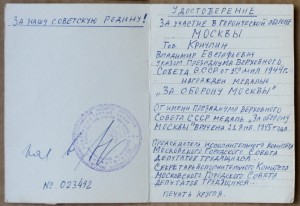 ЗА НАШУ СОВЕТСКУЮ РОДИНУ!
№ 023492
УДОСТОВЕРЕНИЕ
ЗА УЧАСТИЕ В ГЕРОИЧЕСКОЙ ОБОРОНЕ
МОСКВЫ
Тов.
ВЛАДИМИР
УКАЗОМ ПРЕЗИДИУМА ВЕРХОВНОГО
СОВЕТА СССР ОТ 1 МАЯ 1944 Г.
НАГРАЖДЕН МЕДАЛЬЮ
„ЗА ОБОРОНУ МОСКВЫ"
ОТ ИМЕНИ ПРЕЗИДИУМА ВЕРХОВНОГО
СОВЕТА СССР МЕДАЛЬ „ЗА ОБОРОНУ
МОСКВЫ" ВРУЧЕНА
ПРЕДСЕДАТЕЛЬ ИСПОЛНИТЕЛЬНОГО КОМИТЕТА
МОСКОВСКОГО ГОРОДСКОГО СОВЕТА
ДЕПУТАТОВ ТРУДЯЩИХСЯ
СЕКРЕТАРЬ ИСПОЛНИТЕЛЬНОГО КОМИТЕТА
МОСКОВСКОГО ГОРОДСКОГО СОВЕТА
ДЕПУТАТОВ ТРУДЯЩИХСЯ
ПЕЧАТЬ КРУГЛАЯ